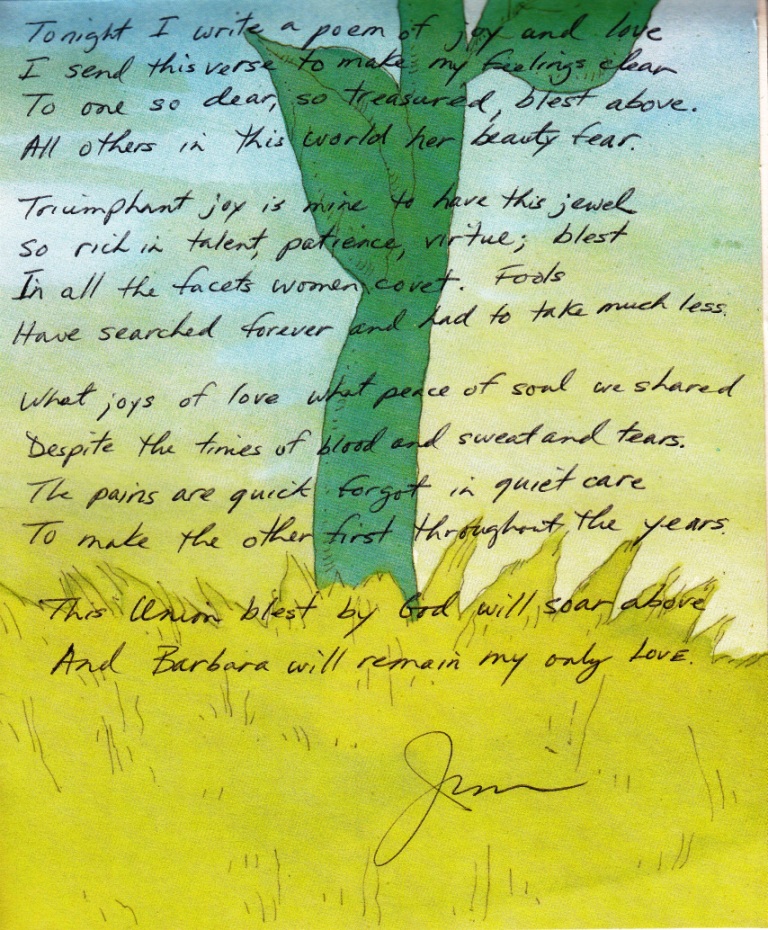 Tonight I write a poem of joy and love
I send this verse to make my feelings clear
To one so dear, so treasured, blest above.
All others in this world her beauty fear.
Triumphant joy is mine to have this jewel
So rich in talent, patience, virtue; blest
In all the facets women covet. Fools
Have searched forever and had to take much less.
What joys of love what peace of soul we shared
Despite the times of blood and sweat and tears.
The pains are quick forgot in quiet care
To make the other first throughout the years.
This Union blest by God will soar above
And Barbara will remain my only Love.
Jim